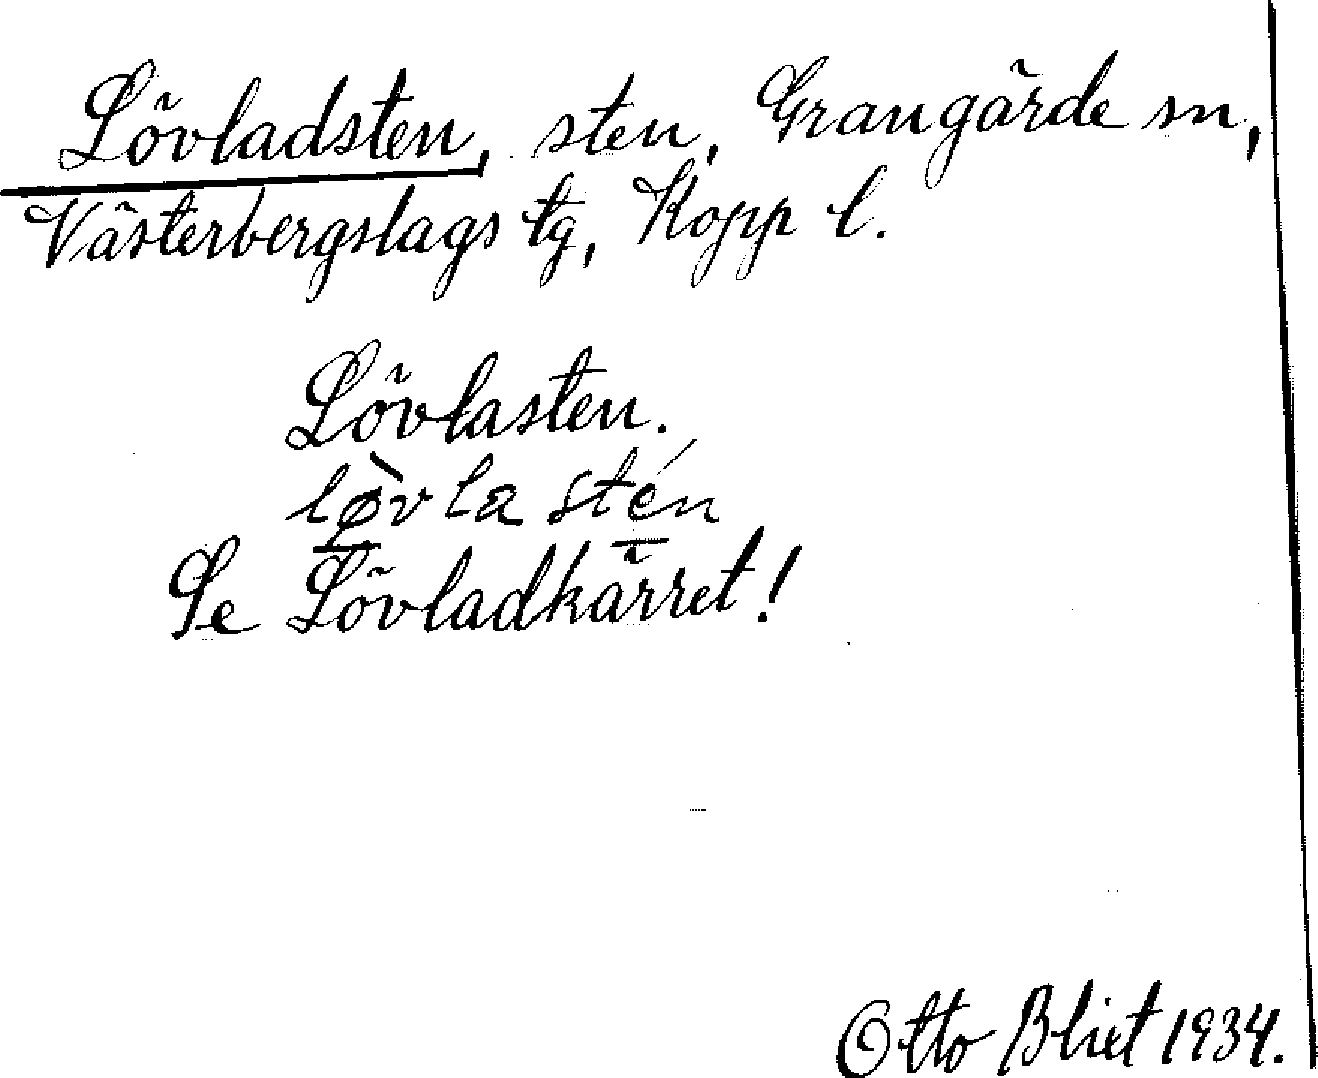 Lövladsten, sten, Grangärde sn,
Västerbergslags tg, Kopp l.
Lövlasten.
lø̀vla stén
Se Lövladkärret!
Otto Blixt 1934.